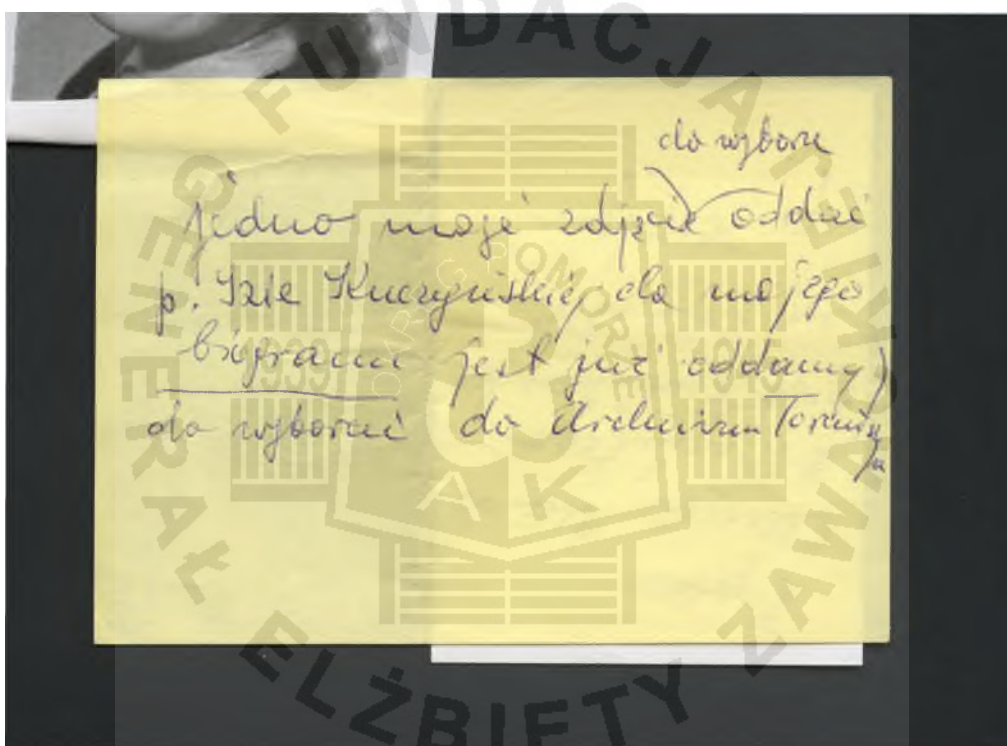 do wyboru
jedno moje zdjęcie oddać
p. Izie Kuczyńskiej do mojego
biogramu jest już oddany)
do wyboru do Archiwum Toruniu
FUNDACJA
GENERAŁ ELŻBIETY ZAWACKIEJ
POMORZE
1939 1945
AK